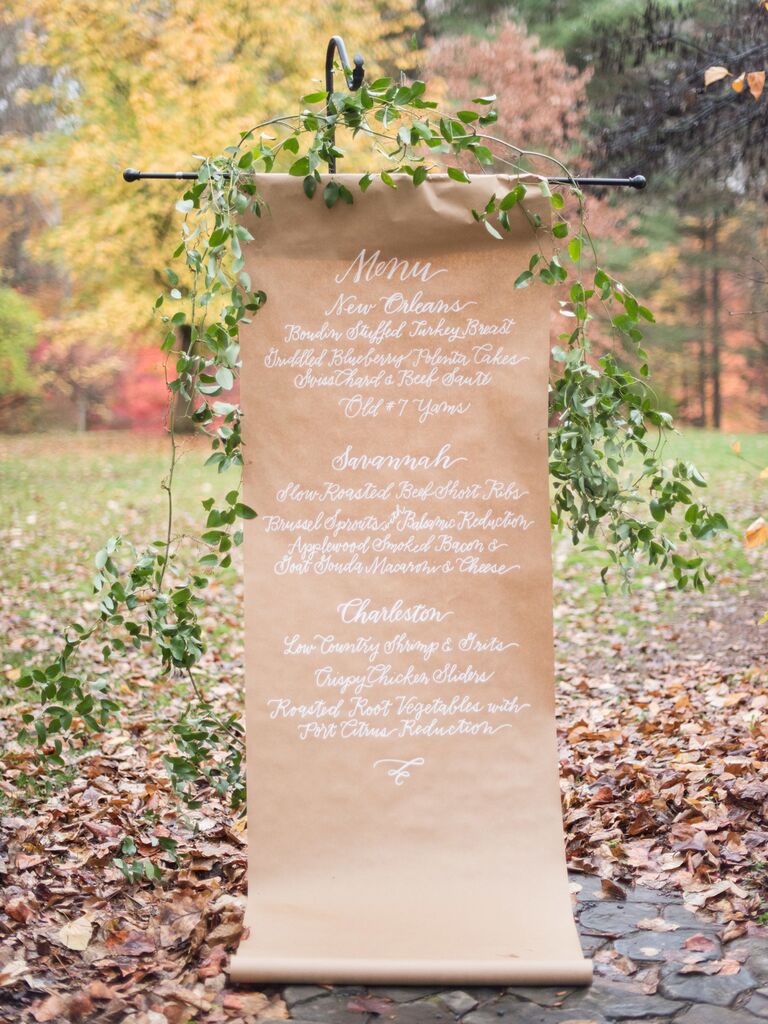 Menu
New Orleans
Boudin Stuffed Turkey Breast
Griddled Blueberry Polenta Cakes
Swiss Chard & Beef Sauté
Old #7 Yams
Savannah
Slow Roasted Beef Short Ribs
Brussel Sprouts with Balsamic Reduction
Applewood Smoked Bacon &
Goat Gouda Macaroni & Cheese
Charleston
Low Country Shrimp & Grits
Crispy Chicken Sliders
Roasted Root Vegetables with
Port Citrus Reduction